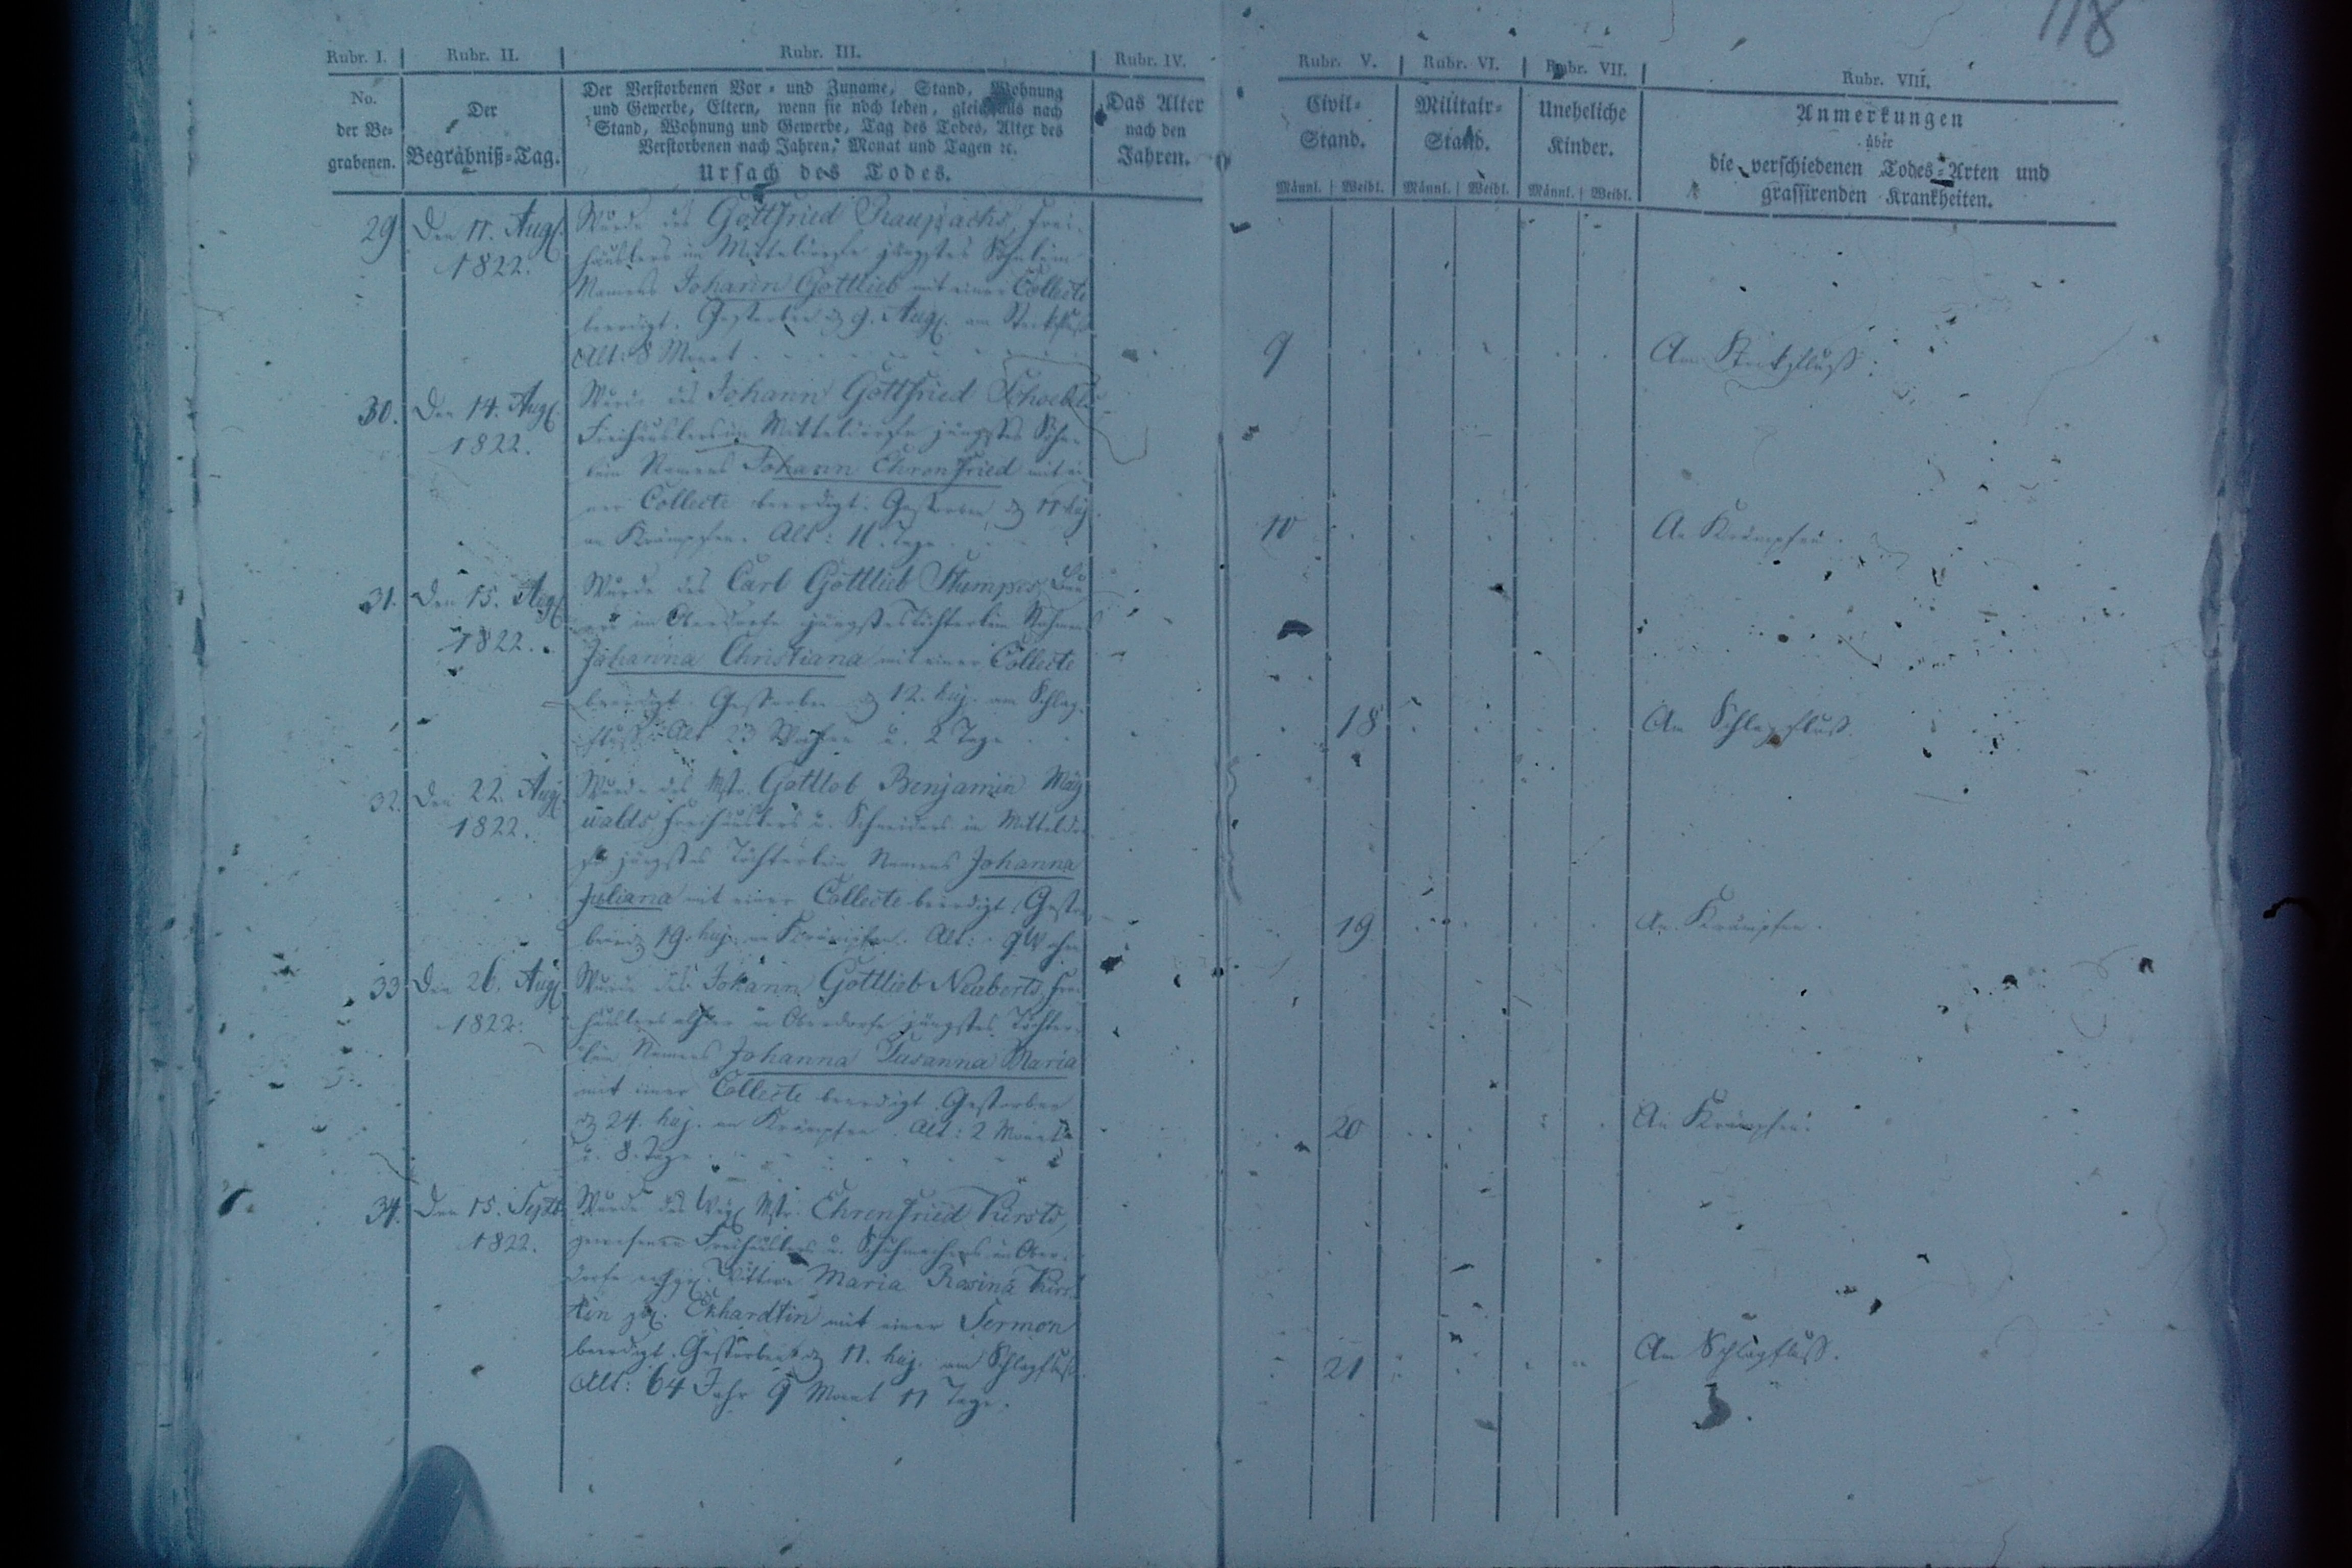 118
Rubr. I. Rubr. II. Rubr. III. Rubr. IV. Rubr. V. Rubr. VI. Rubr. VII. Rubr. VIII.
No.
der Be-
grabenen.
Der
Begräbniß-Tag.
Der Verstorbenen Vor- und Zuname, Stand, Wohnung
und Gewerbe, Eltern, wenn sie noch leben, gleichfalls nach
Stand, Wohnung und Gewerbe, Tag des Todes, Alter des
Verstorbenen nach Jahren, Monat und Tagen ꝛc.
Ursach des Todes.
Das Alter
nach den
Jahren.
Civil-
Stand.
Männl. Weibl.
Militair-
Stand.
Männl. Weibl.
Uneheliche
Kinder.
Männl. Weibl.
Anmerkungen
über
die verschiedenen Todes-Arten und
grassirenden Krankheiten.
29 Den 11. Aug.
1822.
Wurde des Gottfried Raupachs, Frei-
häuslers im Mitteldorfe jüngstes Söhnlein
Namens Johann Gottlieb mit einer Collecte
beerdigt. Gestorben d 9. Aug. am Steckfluß
Alt: 8 Monat
9
Am Steckfluss.
30. Den 14. Aug.
1822.
Wurde des Johann Gottfried
Freihäuslers im Mitteldorfe jüngstes Söhn-
lein Namens Johann Ehrenfried mit ei-
ner Collecte beerdigt. Gestorben d 11 huj.
an Krämpfen. Alt: 11. Tage
10
An Krämpfen.
31. Den 15. Aug.
1822.
Wurde des Carl Gottlieb Stumpes, Bau
ers im Oberdorfe jüngstes Töchterlein Nahmens
Johanna Christiana mit einer Collecte
beerdigt. Gestorben d 12. huj. am Schlag-
fluß. Alt 23 Wochen u. 2 Tage
18
Am Schlagfluß.
32. Den 22. Aug.
1822.
Wurde des Mstr. Gottlob Benjamin May
walds, Freihäuslers u. Schneiders in Mitteldor-
fe jüngstes Töchterlein Namens Johanna
Juliana mit einer Collecte beerdigt. Gestor-
ben d 19. huj. an Krämpfen. Alt: 9 Wochen
19
An Krämpfen.
33 Den 26. Aug.
1822.
Wurde des Johann Gottlieb Neaberts, Frei
häuslers allhier in Oberdorfe jüngstes Töchter-
lein Namens Johanna Susanna Maria
mit einer Collecte beerdigt. Gestorben
d 24. huj. an Krämpfen. Alt: 2 Monat
u. 8. Tage
20
An Krämpfen.
34. Den 15. Septb.
1822.
Wurde des Mstr. Ehrenfried Kirsts,
gewesenen Freihäuslers u. Schuhmachers in Ober-
dorfe Wittwe Maria Rosina Kirs-
tin geb. Ekhardtin mit einer Sermon
beerdigt. Gestorben d 11. huj. am Schlagfluß.
Alt: 64 Jahr 9 Monat 11 Tage.
21
Am Schlagfluss.